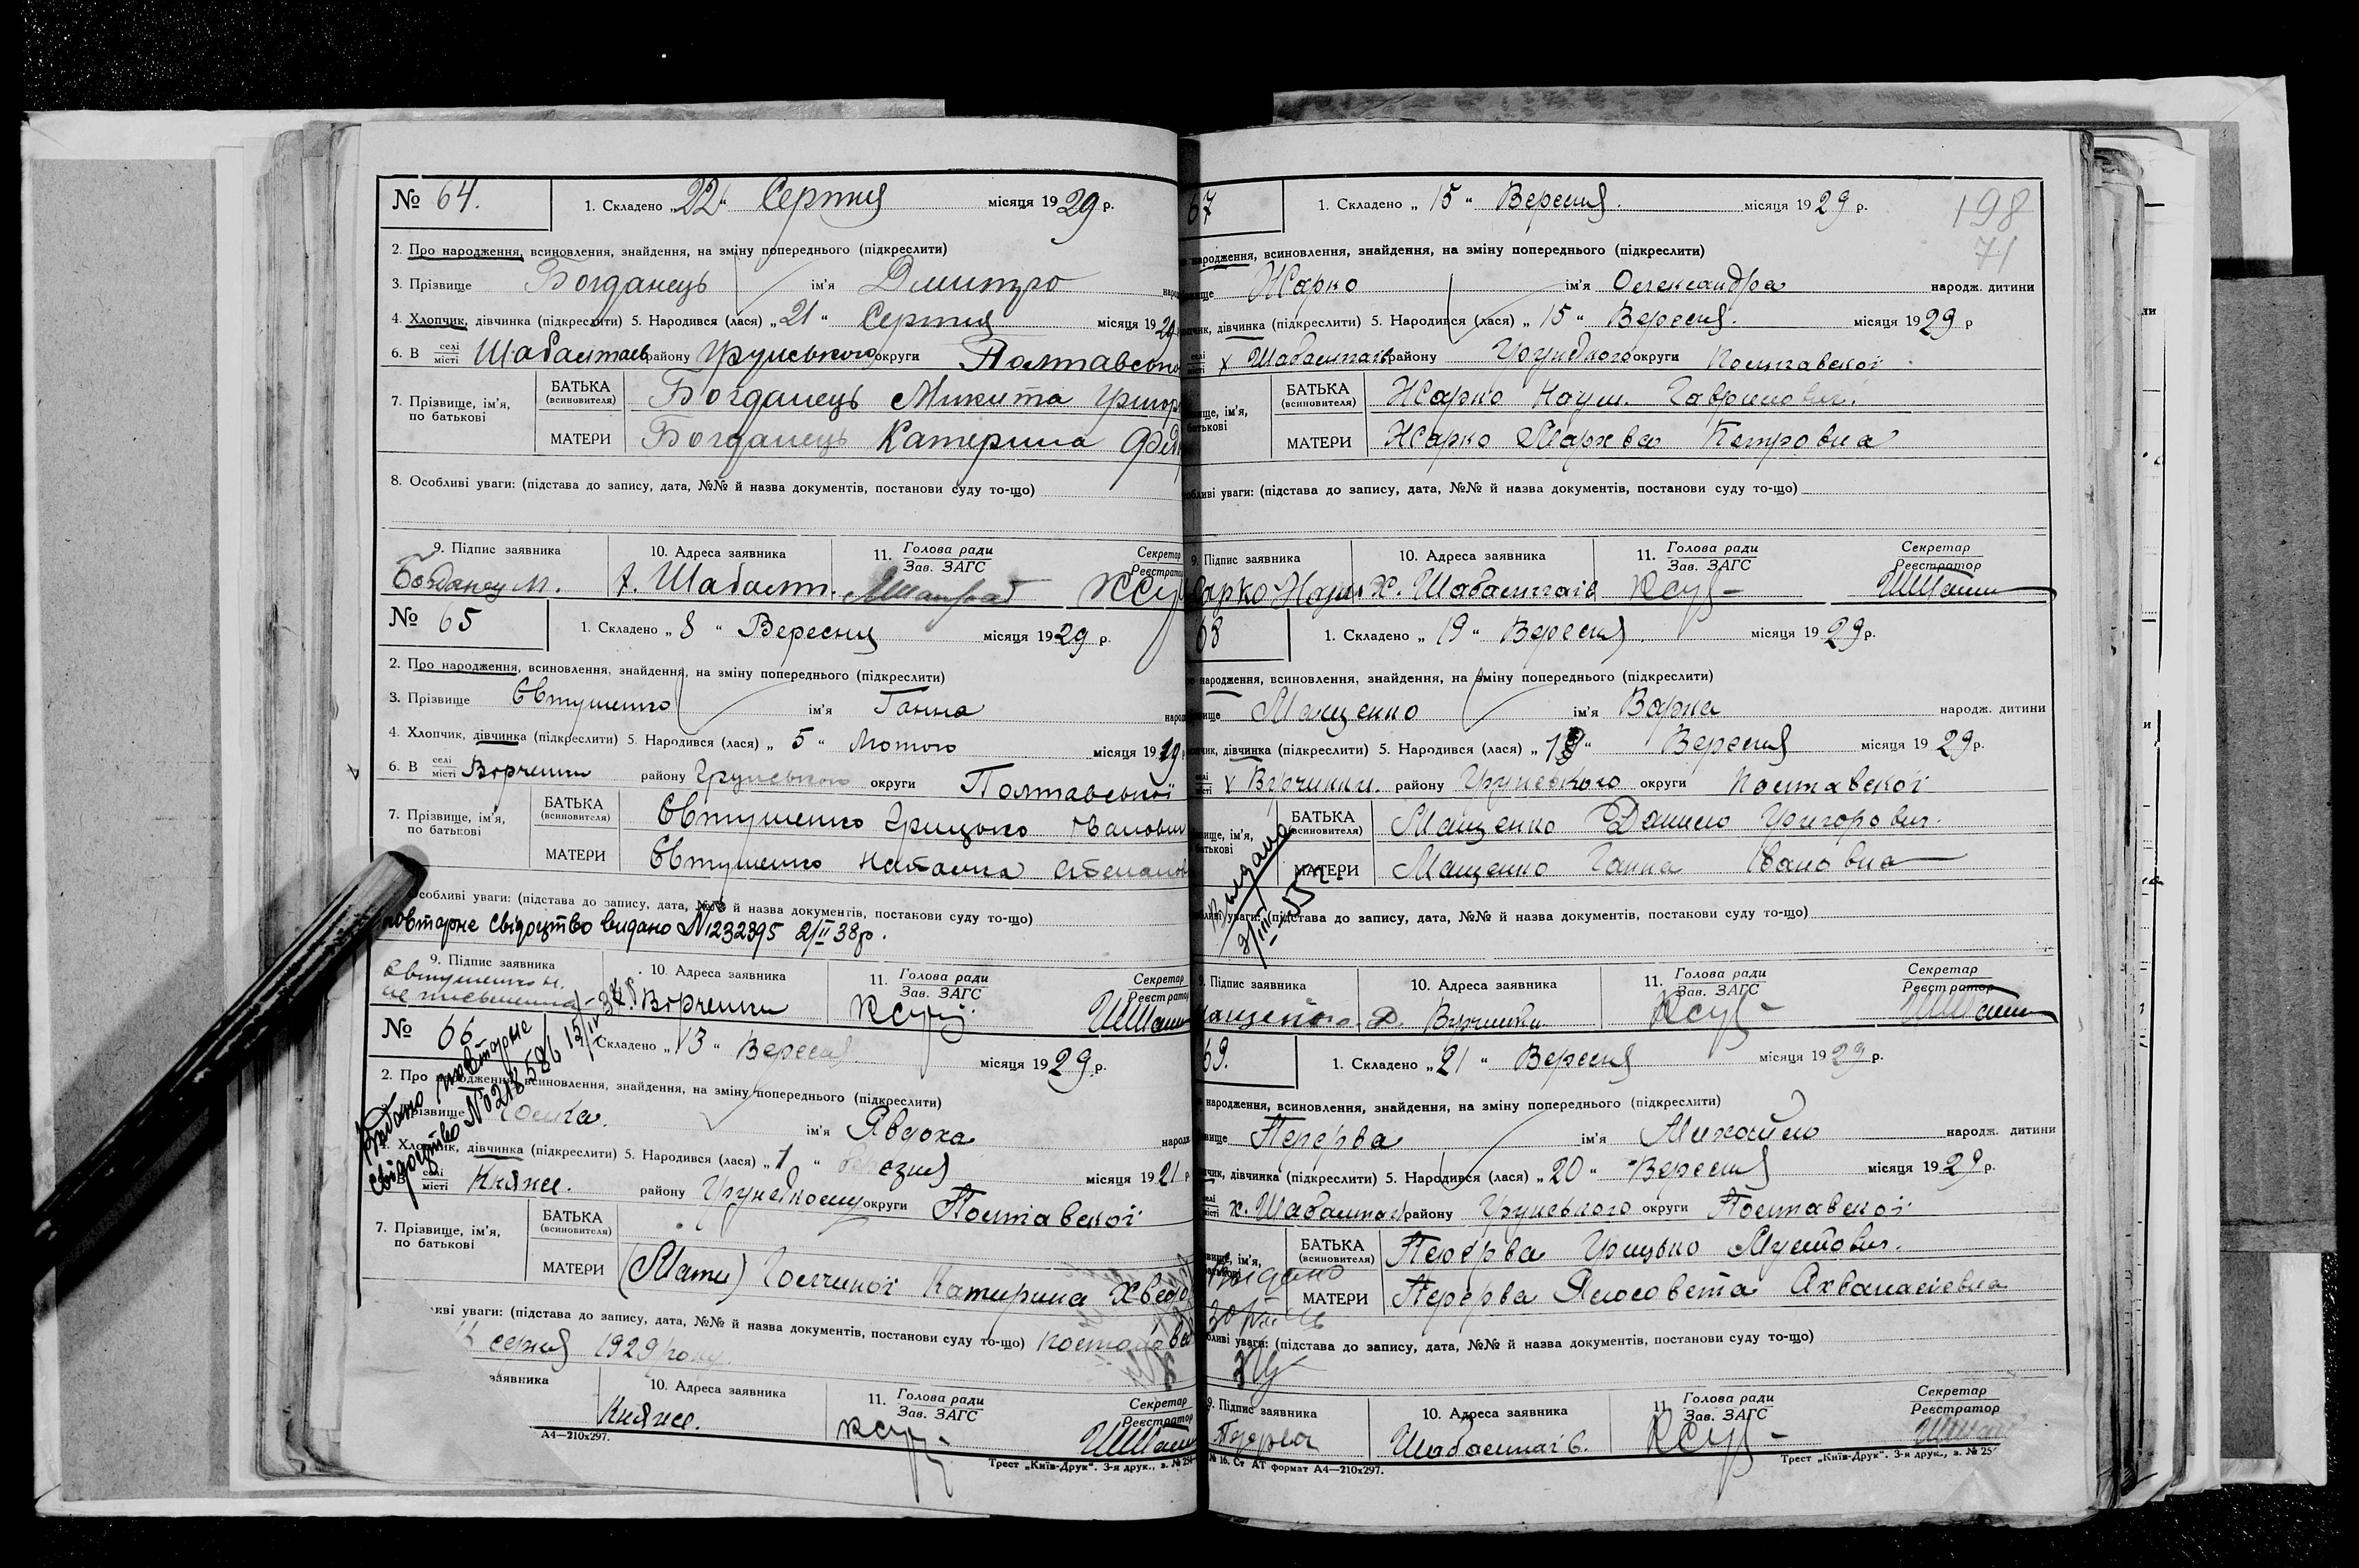 № 64.
1. Складено „22“ Серпня місяця 1929 р.
2. Про народження, всиновлення, знайдення, на зміну попереднього (підкреслити)
3. Прізвище Богданець ім'я Дмитро
4. Хлопчик, дівчинка (підкреслити) 5. Народився (лася) „21“ Серпня місяця 1929
6. В селі місті Шабалтаїв району Грунського округи Полтавсько
7. Прізвище, ім'я, по батькові
БАТЬКА (всиновителя) Богданець Микита Григор
МАТЕРИ Богданець Катерина
8. Особливі уваги: (підстава до запису, дата, №№ й назва документів, постанови суду то-що)
9. Підпис заявника 10. Адреса заявника 11. Голова ради Зав. ЗАГС Секретар Реєстратор
Богданец М. х. Шабалт.
№ 65
1. Складено „8“ Вересня місяця 1929 р.
2. Про народження, всиновлення, знайдення, на зміну попереднього (підкреслити)
3. Прізвище Євтушенко ім'я Ганна
4. Хлопчик, дівчинка (підкреслити) 5. Народився (лася) „5“ Лютого місяця 1929
6. В селі місті району Грунського округи Полтавської
7. Прізвище, ім'я, по батькові
БАТЬКА (всиновителя) Євтушенко Грицько Іванович
МАТЕРИ Євтушенко Наталка Степанов
Особливі уваги: (підстава до запису, дата, №№ й назва документів, постанови суду то-що)
повторне свідоцтво видано №1232395 2/II 38р.
9. Підпис заявника 10. Адреса заявника 11. Голова ради Зав. ЗАГС Секретар Реєстратор
Євтушенко Н.
неписьменна
№ 66
Складено „13“ Вересня місяця 1929 р.
Видано повторне
свідоцтво №0218586
2. Про народження, всиновлення, знайдення, на зміну попереднього (підкреслити)
Прізвище ім'я Явдоха
4. Хлопчик, дівчинка (підкреслити) 5. Народився (лася) „1“ місяця 1921 р
В селі місті Княже. району Грунському округи Полтавської
7. Прізвище, ім'я, по батькові
БАТЬКА (всиновителя)
МАТЕРИ (Мати) Катирина Хведо
уваги: (підстава до запису, дата, №№ й назва документів, постанови суду то-що)
1929 року.
заявника 10. Адреса заявника 11. Голова ради Зав. ЗАГС Секретар Реєстратор
Княже.
А4—210х297.
Трест „Київ-Друк“. 3-я друк., з. №
67
1. Складено „15“ Вересня місяця 1929 р.
198
71
народження, всиновлення, знайдення, на зміну попереднього (підкреслити)
Жарко ім'я Олександра народж. дитини
дівчинка (підкреслити) 5. Народився (лася) „15“ Вересня місяця 1929 р
селі місті х Шабалтаїв району Грунского округи Полтавської
ім'я, батькові
БАТЬКА (всиновителя) Жарко Наум Гаврилович.
МАТЕРИ Жарко Мархва Петровна
уваги: (підстава до запису, дата, №№ й назва документів, постанови суду то-що)
9. Підпис заявника 10. Адреса заявника 11. Голова ради Зав. ЗАГС Секретар Реєстратор
Х. Шабалтаїв
68
1. Складено „19“ Вересня місяця 1929 р.
народження, всиновлення, знайдення, на зміну попереднього (підкреслити)
Мащенко ім'я Варка народж. дитини
дівчинка (підкреслити) 5. Народився (лася) Вересня місяця 1929 р.
селі місті х району Грунского округи Полтавської
ім'я, батькові
БАТЬКА (всиновителя) Мащенко Данило Григорович.
МАТЕРИ Мащенко Ганна Івановна
Видано
уваги: (підстава до запису, дата, №№ й назва документів, постанови суду то-що)
9. Підпис заявника 10. Адреса заявника 11. Голова ради Зав. ЗАГС Секретар Реєстратор
69.
1. Складено „21“ Вересня місяця 1929 р.
народження, всиновлення, знайдення, на зміну попереднього (підкреслити)
Перерва ім'я Михайло народж. дитини
дівчинка (підкреслити) 5. Народився (лася) „20“ Вересня місяця 1929 р.
х. Шабалтаїв району Грунського округи Полтавської
ім'я,
БАТЬКА (всиновителя) Перерва Грицько Мусійович.
МАТЕРИ Перерва Ялосовета Ахванасіевна
Видано
уваги: (підстава до запису, дата, №№ й назва документів, постанови суду то-що)
9. Підпис заявника 10. Адреса заявника 11. Голова ради Зав. ЗАГС Секретар Реєстратор
Перерва Шабалтаїв.
№ 16. Ст АТ формат А4—210х297.
Трест „Київ-Друк“. 3-я друк., з. № 25